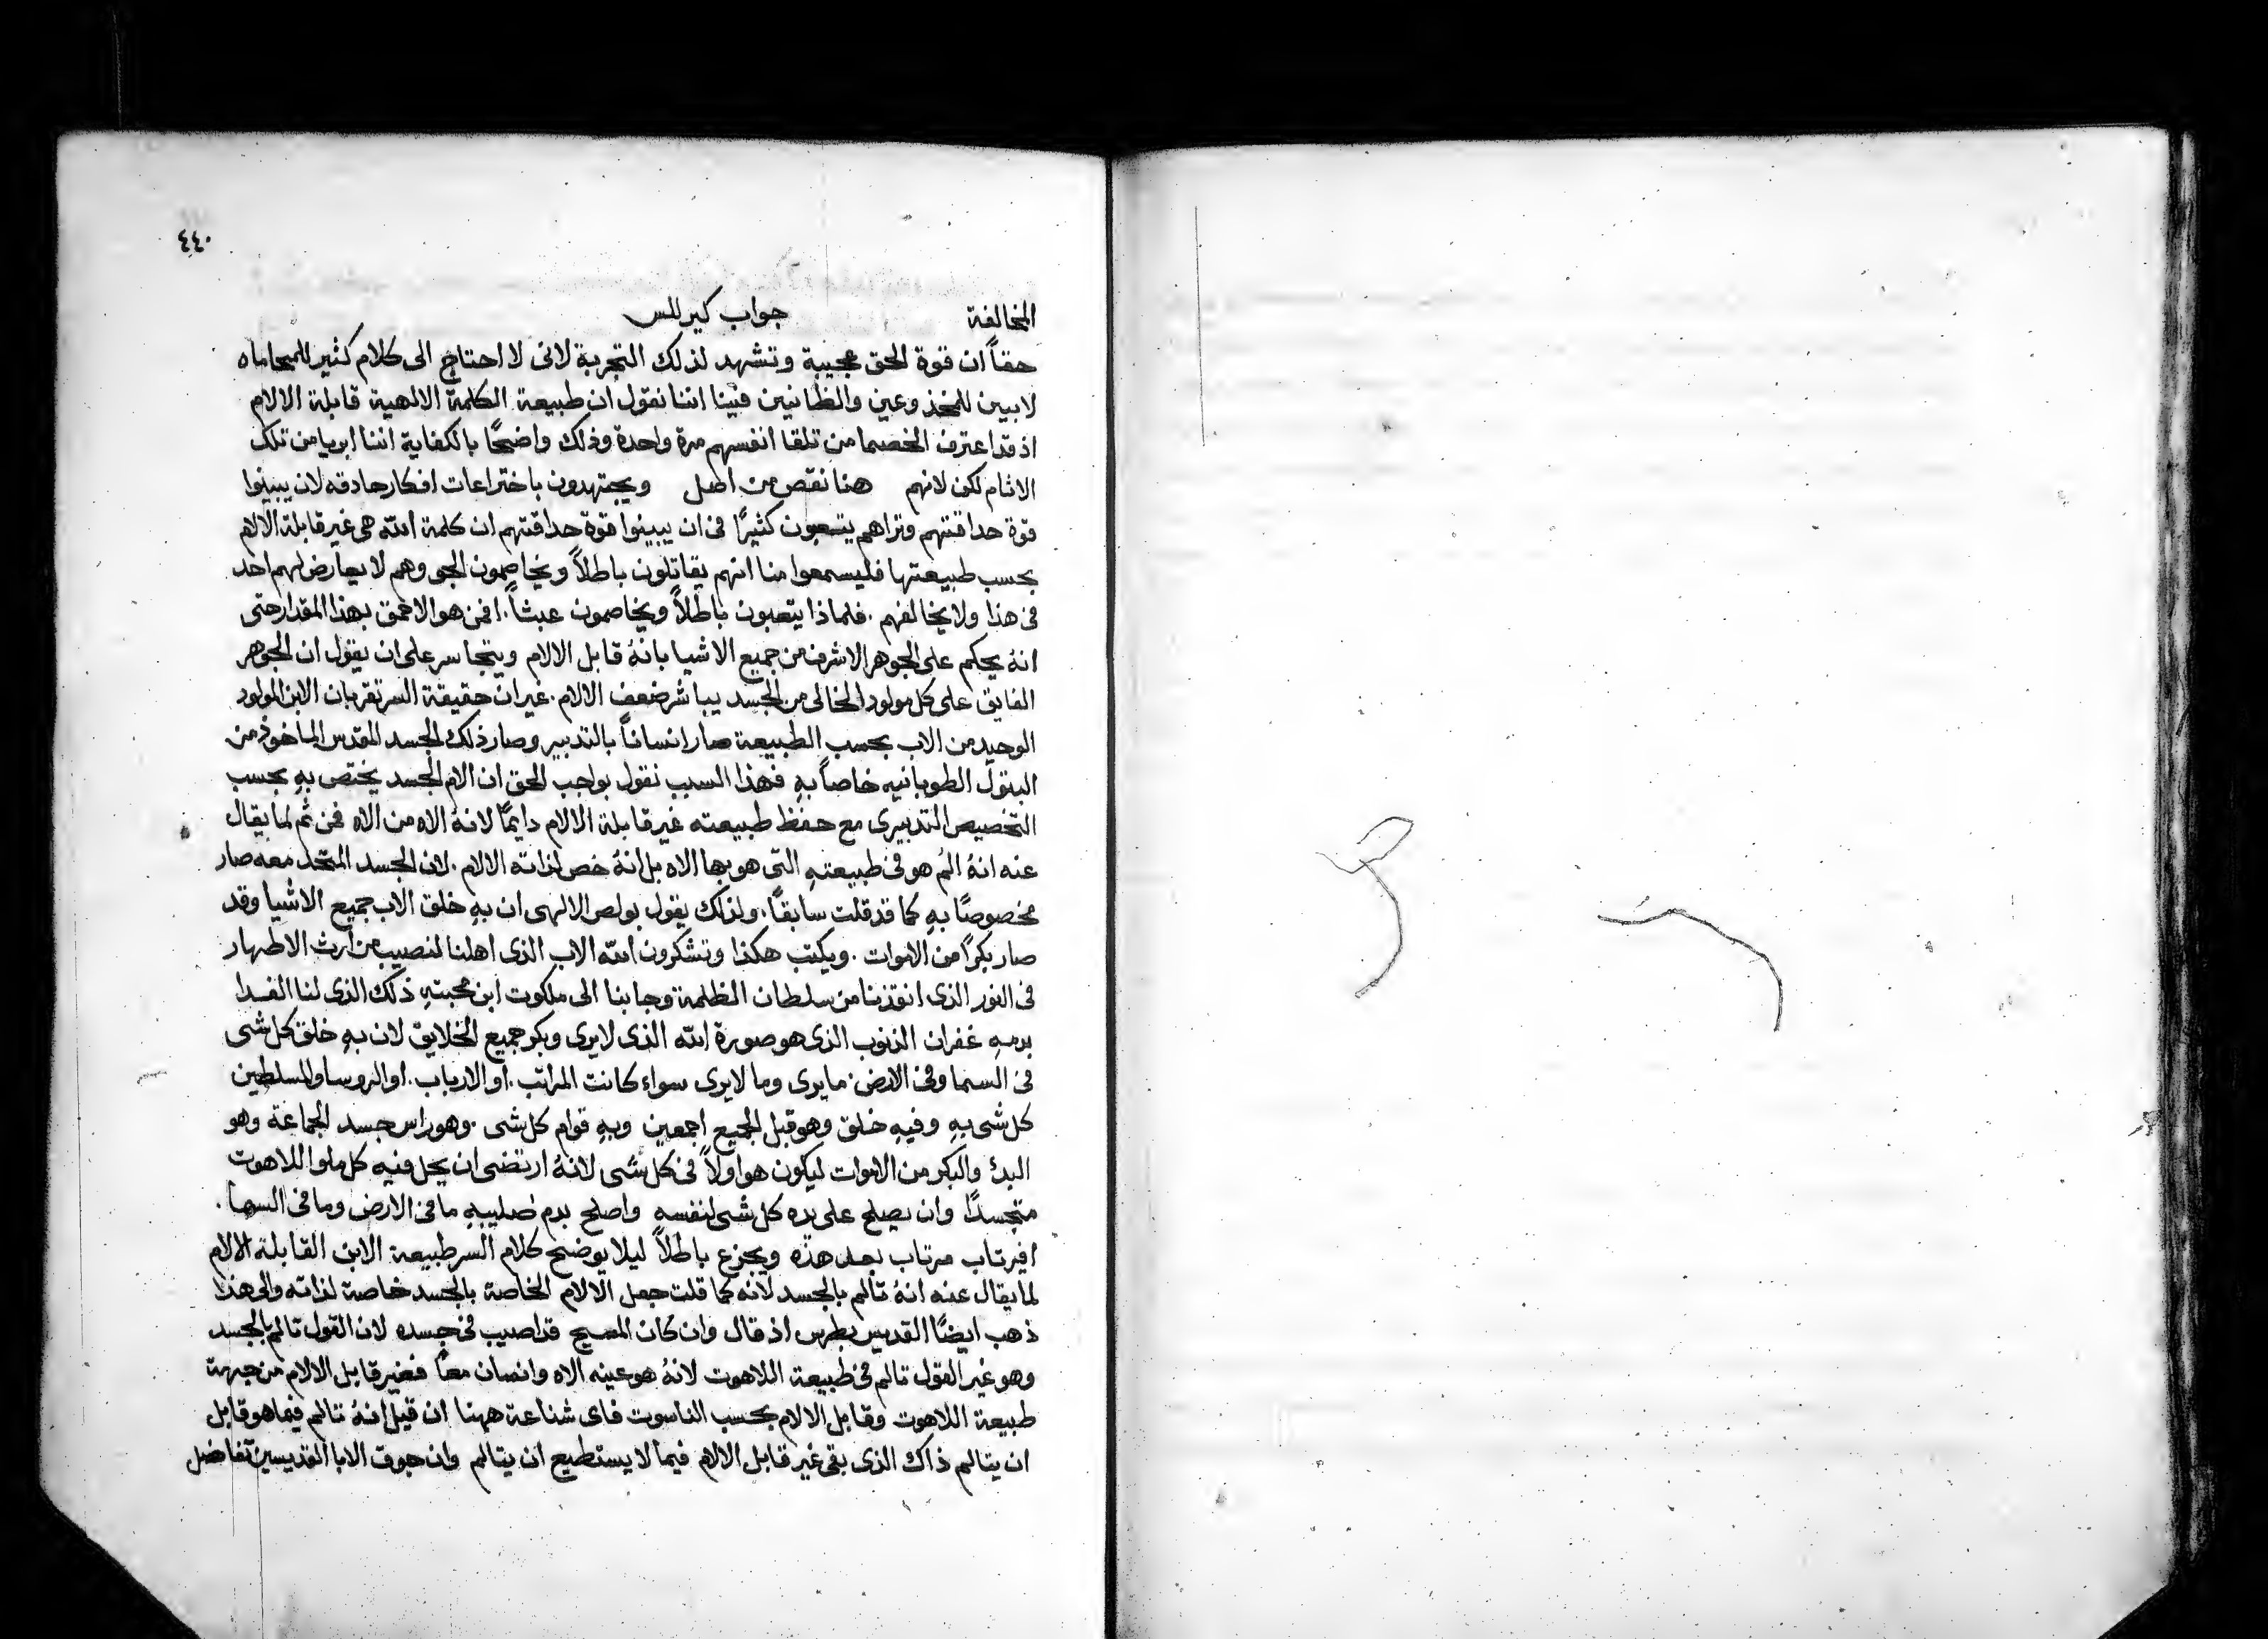 ٤٤٠
المخالفة جواب كيرللس
حقاً ان قوة الحق عجيبة وتشهد لذلك التجربة لانى لا احتاج الى كلام كثير للمحاماه
لابيين للمخذوعين والظانيين فينا اننا نقول ان طبيعة الكلمة الالهية قابلة الالام
اذ قد اعترف الخصما من تلقا انفسهم مرة واحدة وذلك واضحًا بالكفاية اننا ابريا من تلك
الاثام لكن لانهم هنا نقص من اصل ويجتهدون باختراعات افكار حادقه لان يبينوا
قوة حداقتهم وتراهم يتعبون كثيرًا فى ان يبينوا قوة حداقتهم ان كلمة الله هى غير قابلة الالام
بحسب طبيعتها فليسمعوا منا انهم يقاتلون باطلاً ويخاصمون الجو وهم لا يعارض لهم احد
فى هذا ولا يخالفهم . فلماذا يتعبون باطلاً ويخاصمون عبثاً . افمن هو الاحمق بهذا المقدار حتى
انهُ يحكم على الجوهر الاشرف من جميع الاشيا بانهُ قابل الالام ويتجاسر على ان يقول ان الجوهر
الفايق على كل مولود الخالى من الجسد يباشر ضعف الالام . غير ان حقيقة السر تقر بان الابن المولود
الوحيد من الاب بحسب الطبيعة صار انساناً بالتدبير وصار ذلك الجسد المقدس الماخوذ من
البتول الطوبانيه خاصاً بهِ فهذا السبب نقول بواجب الحق ان الام الجسد يختص بهِ بحسب
التخصيص التدبيرى مع حفظ طبيعته غير قابلة الالام دايمًا لانهُ الاه من الاه فمن ثم لما يقال
عنه انهُ المُ هو فى طبيعتهِ التى هو بها الاه بل انهُ خص لذاته الالام . لان الجسد المتحد معه صار
مخصوصًا بهِ كما قد قلت سابقًا . ولذلك يقول بولص الالهى ان بهِ خلق الاب جميع الاشيا وقد
صار بكرًا من الاموات . ويكتب هكذا وتشكرون الله الاب الذى اهلنا لنصيب من ارث الاطهار
فى النور الذى انقذنا من سلطان الظلمة وجا بنا الى ملكوت ابن محبتهِ ذلك الذى لنا الفدا
بدمهِ غفران الذنوب الذى هو صورة الله الذى لا يرى وبكر جميع الخلايق لان بهِ خلق كل شى
فى السما وفى الارض . ما يرى وما لا يرى سواء كانت المراتب . او الارباب . او الروسا والسلطين
كل شى بهِ وفيهِ خلق وهو قبل الجميع اجمعين وبهِ قوام كل شى . وهو راس جسد الجماعة وهو
البدئ والبكر من الاموات ليكون هو اولاً فى كل شى لانهُ ارتضى ان يحل فيهِ كل ملوا اللاهوت
متجسدًا وان يصلح على يده كل شى لنفسهِ واصلح بدم صليبهِ ما فى الارض وما فى السما .
افيرتاب مرتاب بعد هذه ويجزع باطلاً ليلا يوضح كلام السر طبيعة الابن القابلة الالام
لما يقال عنه انهُ تالم بالجسد لانه كما قلت جعل الالام الخاصة بالجسد خاصة لذاته والى هذا
ذهب ايضًا القديس بطرس اذ قال وان كان المسيح قد اصيب فى جسده لان القول تالم بالجسد
وهو غير القول تالم فى طبيعة اللاهوت لانهُ هو عينه الاه وانسان معًا فغير قابل الالام من جهة
طبيعة اللاهوت وقابل الالام بحسب الناسوت فاى شناعة ههنا ان قيل انهُ تالم فيما هو قابل
ان يتالم ذاك الذى بقى غير قابل الالام فيما لا يستطيع ان يتالم وان جوق الابا القديسين تفاضل